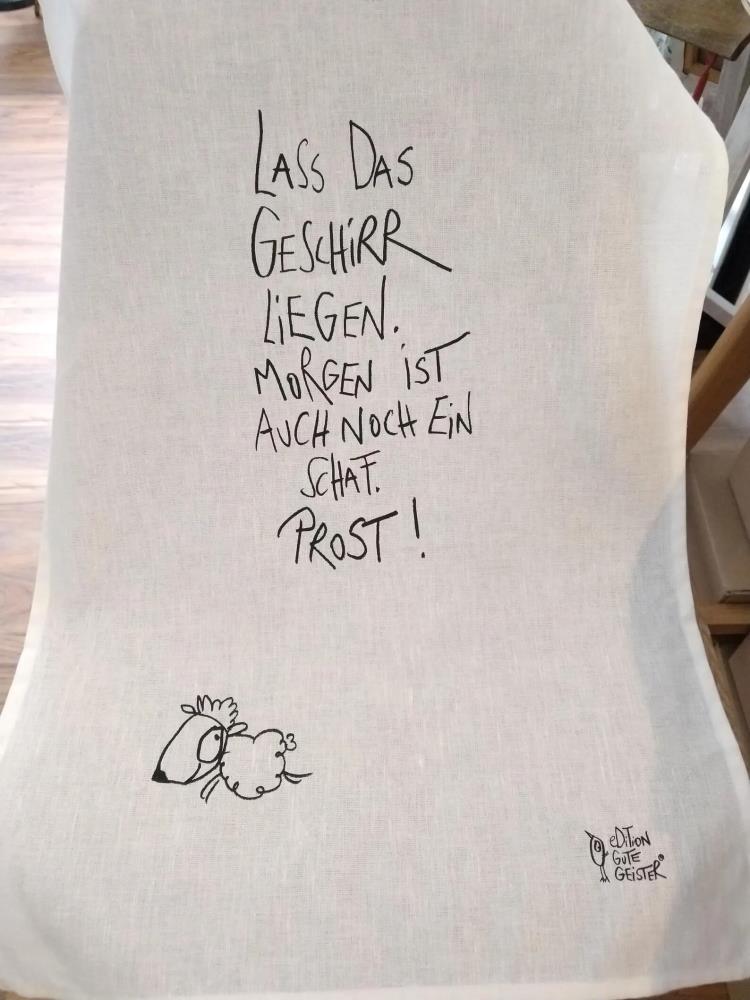 LASS DAS
GESCHiRR
LiEGEN.
MORGEN iST
AUCH NOCH EiN
SCHAF.
PROST!
eDiTiON
GUTE
GEiSTER®